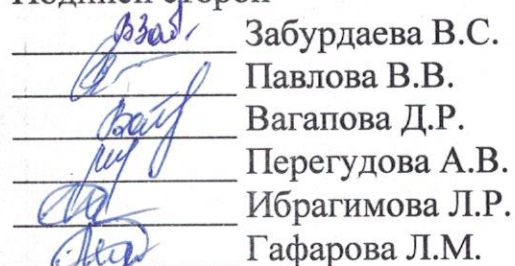 Забурдаева В.С.
Павлова В.В.
Вагапова Д.Р.
Перегудова А.В.
Ибрагимова Л.Р.
Гафарова Л.М.